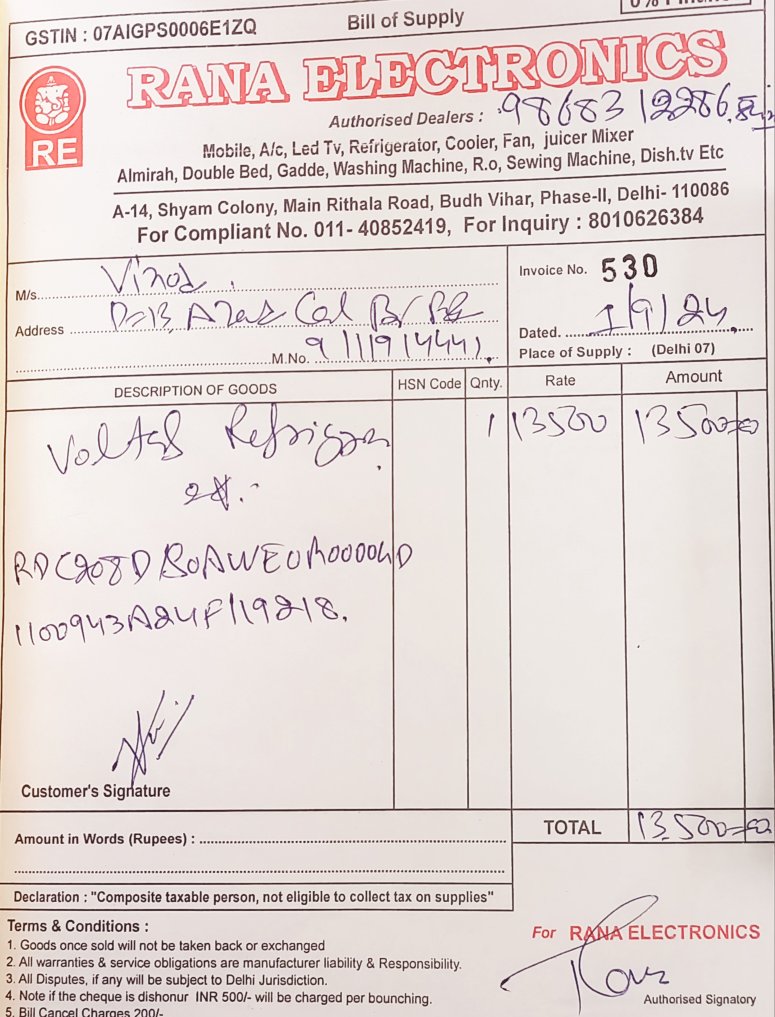 GSTIN : 07AIGPS0006E1ZQ
Bill of Supply
RANA ELECTRONICS
RE
Authorised Dealers : 9868312286
Mobile, A/c, Led Tv, Refrigerator, Cooler, Fan, juicer Mixer
Almirah, Double Bed, Gadde, Washing Machine, R.o, Sewing Machine, Dish.tv Etc
A-14, Shyam Colony, Main Rithala Road, Budh Vihar, Phase-II, Delhi- 110086
For Compliant No. 011- 40852419, For Inquiry : 8010626384
M/s. Vinod
Invoice No. 530
Address D-13, Azad Col
Dated. 1/9/24
M.No. 9111914441
Place of Supply : (Delhi 07)
DESCRIPTION OF GOODS HSN Code Qnty. Rate Amount
Voltas 1 13500 13500=00
RDC208D
1100943A24F119218.
Customer's Signature
TOTAL 13500=00
Amount in Words (Rupees) :
Declaration : "Composite taxable person, not eligible to collect tax on supplies"
Terms & Conditions :
1. Goods once sold will not be taken back or exchanged
2. All warranties & service obligations are manufacturer liability & Responsibility.
3. All Disputes, if any will be subject to Delhi Jurisdiction.
4. Note if the cheque is dishonur INR 500/- will be charged per bounching.
5. Bill Cancel Charges 200/-
For RANA ELECTRONICS
Authorised Signatory